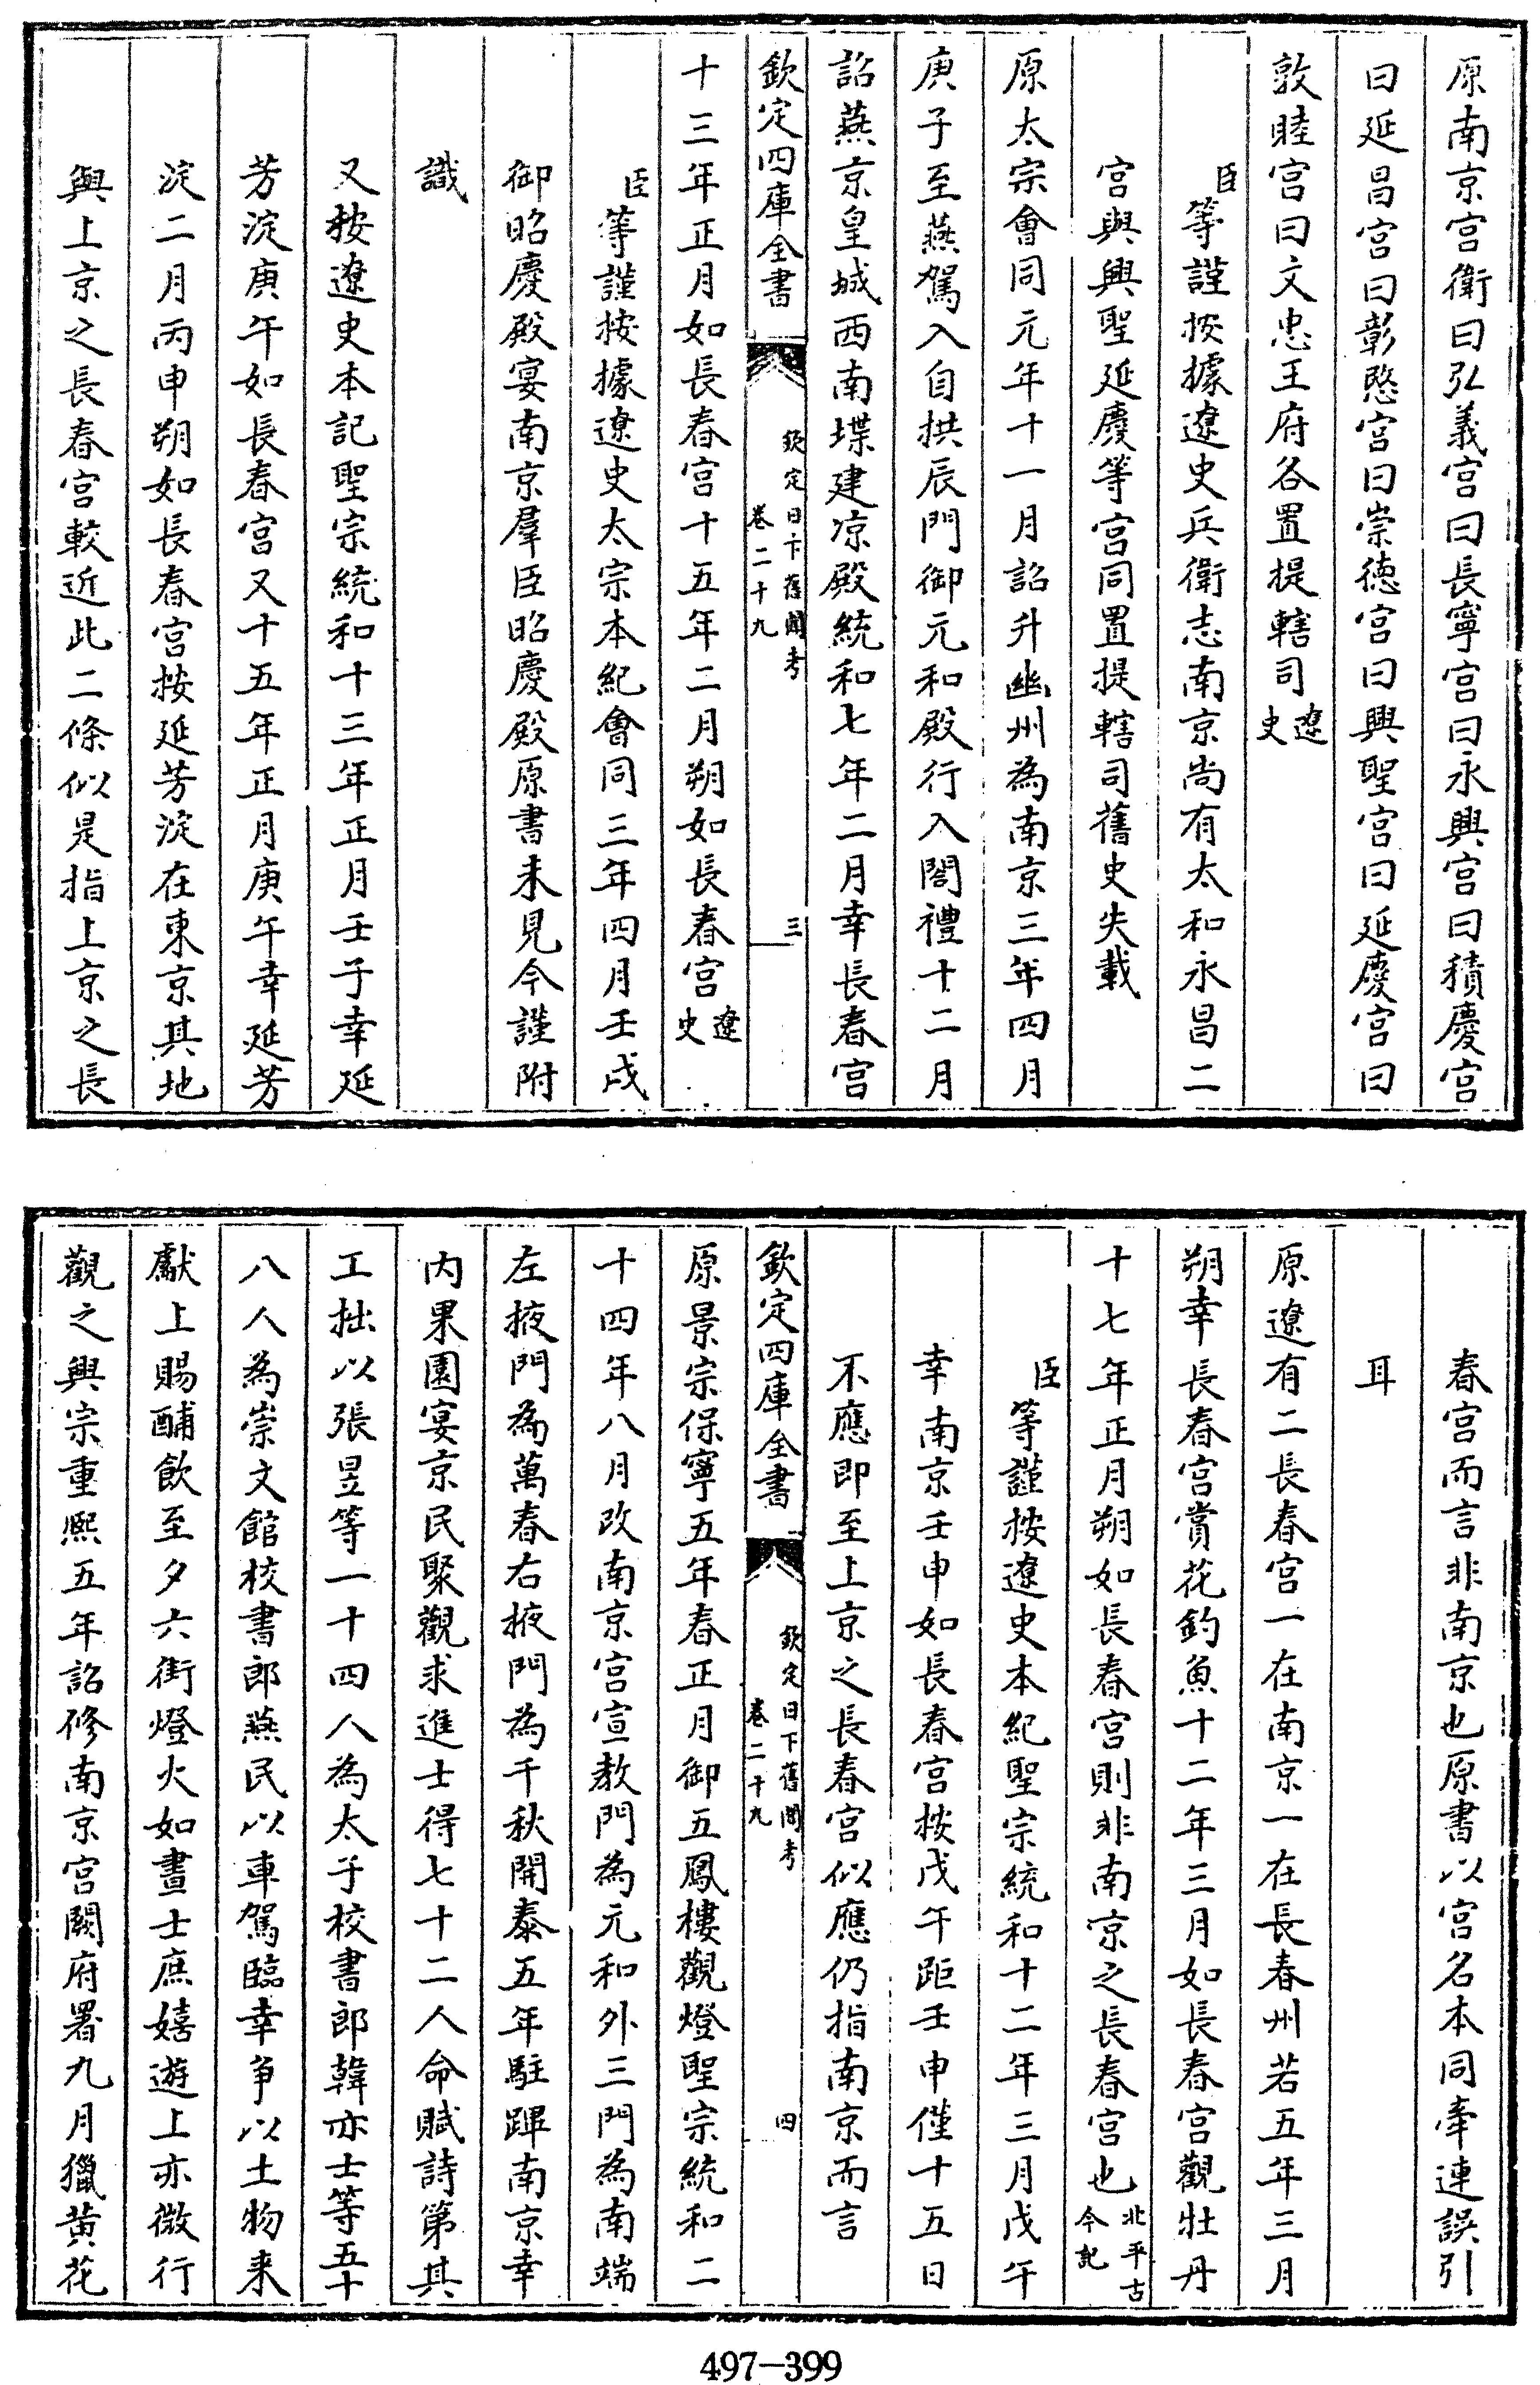 原南京宫衛曰弘義宫曰長寧宫曰永興宫曰積慶宫
曰延昌宫曰彰愍宫曰崇徳宫曰興聖宫曰延慶宫曰
敦睦宫曰文忠王府各置提轄司遼史
臣等謹按據遼史兵衛志南京尚有太和永昌二
宫與興聖延慶等宫同置提轄司舊史失載
原太宗會同元年十一月詔升幽州為南京三年四月
庚子至燕駕入自拱辰門御元和殿行入閤禮十二月
詔燕京皇城西南堞建凉殿統和七年二月幸長春宫
欽定四庫全書
欽定日下舊聞考
卷二十九
三
十三年正月如長春宫十五年二月朔如長春宫遼史
臣等謹按據遼史太宗本紀會同三年四月壬戌
御昭慶殿宴南京羣臣昭慶殿原書未見今謹附
識
又按遼史本記聖宗統和十三年正月壬子幸延
芳淀庚午如長春宫又十五年正月庚午幸延芳
淀二月丙申朔如長春宫按延芳淀在東京其地
與上京之長春宫較近此二條似是指上京之長
春宫而言非南京也原書以宫名本同牽連誤引
耳
原遼有二長春宫一在南京一在長春州若五年三月
朔幸長春宫賞花釣魚十二年三月如長春宫觀牡丹
十七年正月朔如長春宫則非南京之長春宫也北平古今記
臣等謹按遼史本紀聖宗統和十二年三月戊午
幸南京壬申如長春宫按戊午距壬申僅十五日
不應即至上京之長春宫似應仍指南京而言
欽定四庫全書
欽定日下舊聞考
卷二十九
四
原景宗保寧五年春正月御五鳳樓觀燈聖宗統和二
十四年八月改南京宫宣教門為元和外三門為南端
左掖門為萬春右掖門為千秋開泰五年駐蹕南京幸
内果園宴京民聚觀求進士得七十二人命賦詩第其
工拙以張昱等一十四人為太子校書郎韓亦士等五十
八人為崇文館校書郎燕民以車駕臨幸争以土物来
獻上賜酺飲至夕六街燈火如晝士庶嬉遊上亦微行
觀之興宗重熙五年詔修南京宫闕府署九月獵黄花
497-399